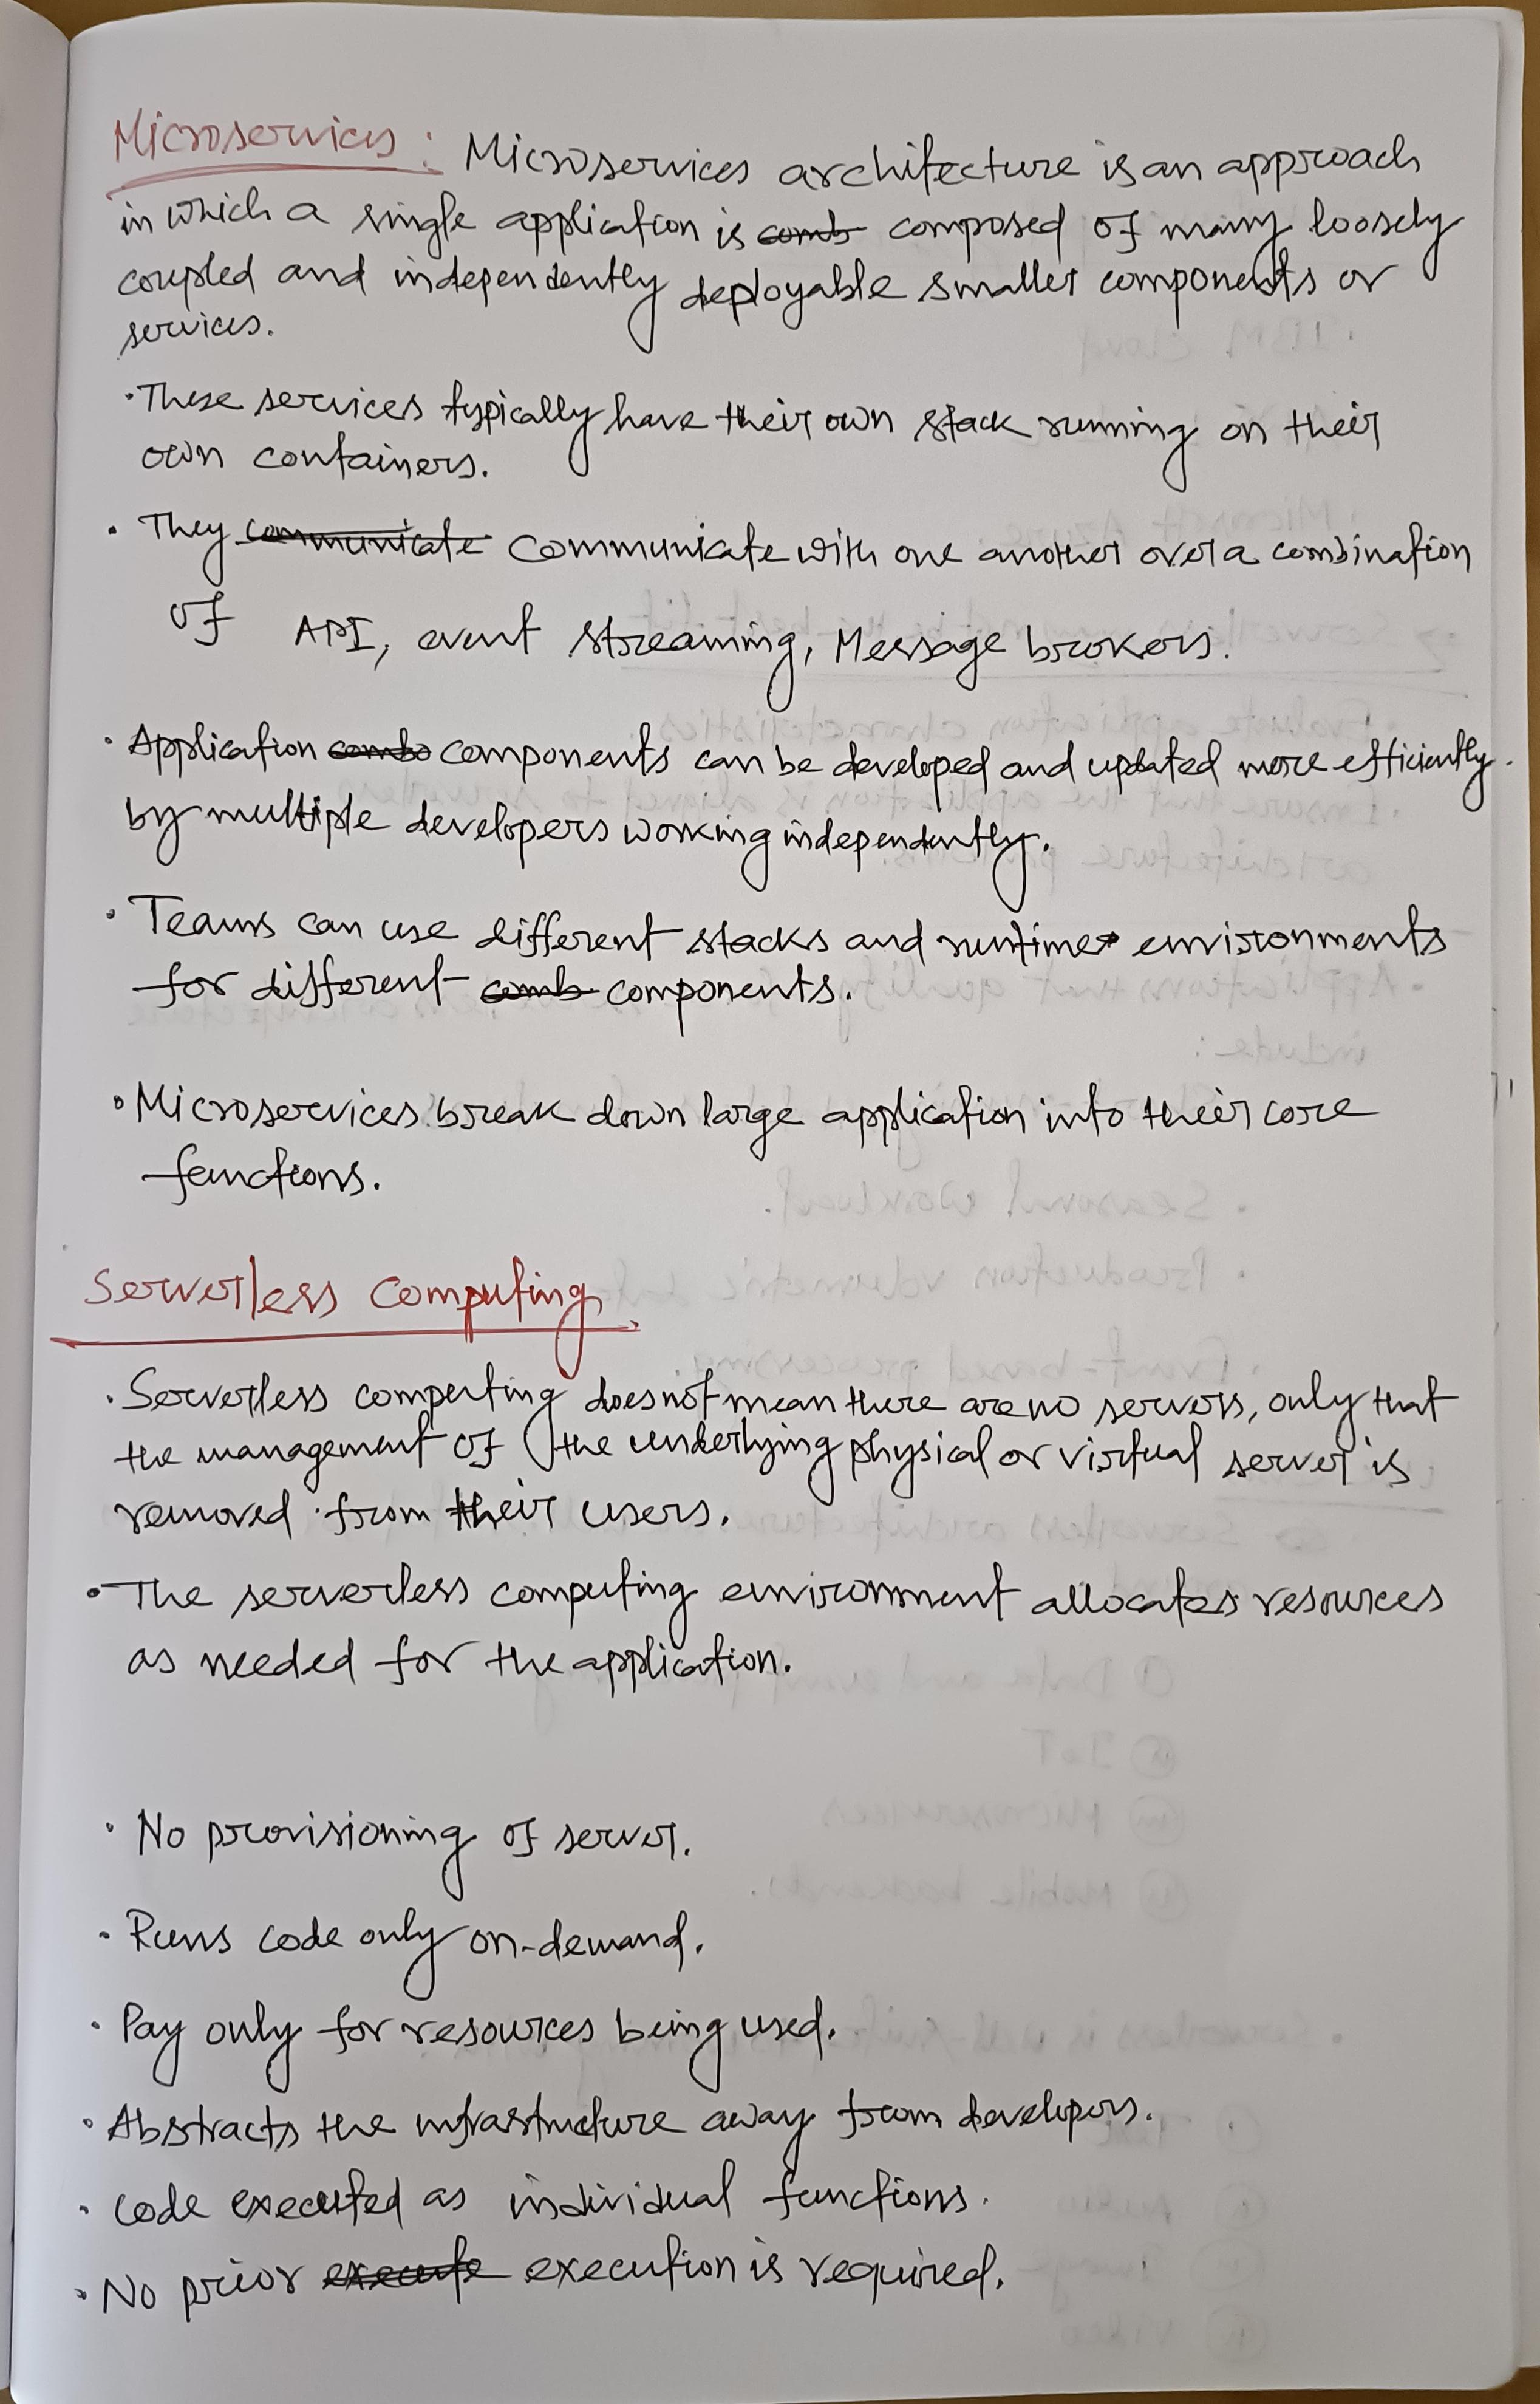 Microservices: Microservices architecture is an approach
in which a single application is comb composed of many loosely
coupled and independently deployable smaller components or
services.
· These services typically have their own stack running on their
own containers.
· They communicate communicate with one another over a combination
of API, event streaming, Message brokers.
· Application combo components can be developed and updated more efficiently
by multiple developers working independently.
· Teams can use different stacks and runtime environments
for different comb components.
· Microservices break down large application into their core
functions.
Serverless Computing
· Serverless computing does not mean there are no servers, only that
the management of the underlying physical or virtual server is
removed from their users.
· The serverless computing environment allocates resources
as needed for the application.
· No provisioning of server.
· Runs code only on-demand.
· Pay only for resources being used.
· Abstracts the infrastructure away from developers.
· Code executed as individual functions.
· No prior execute execution is required.